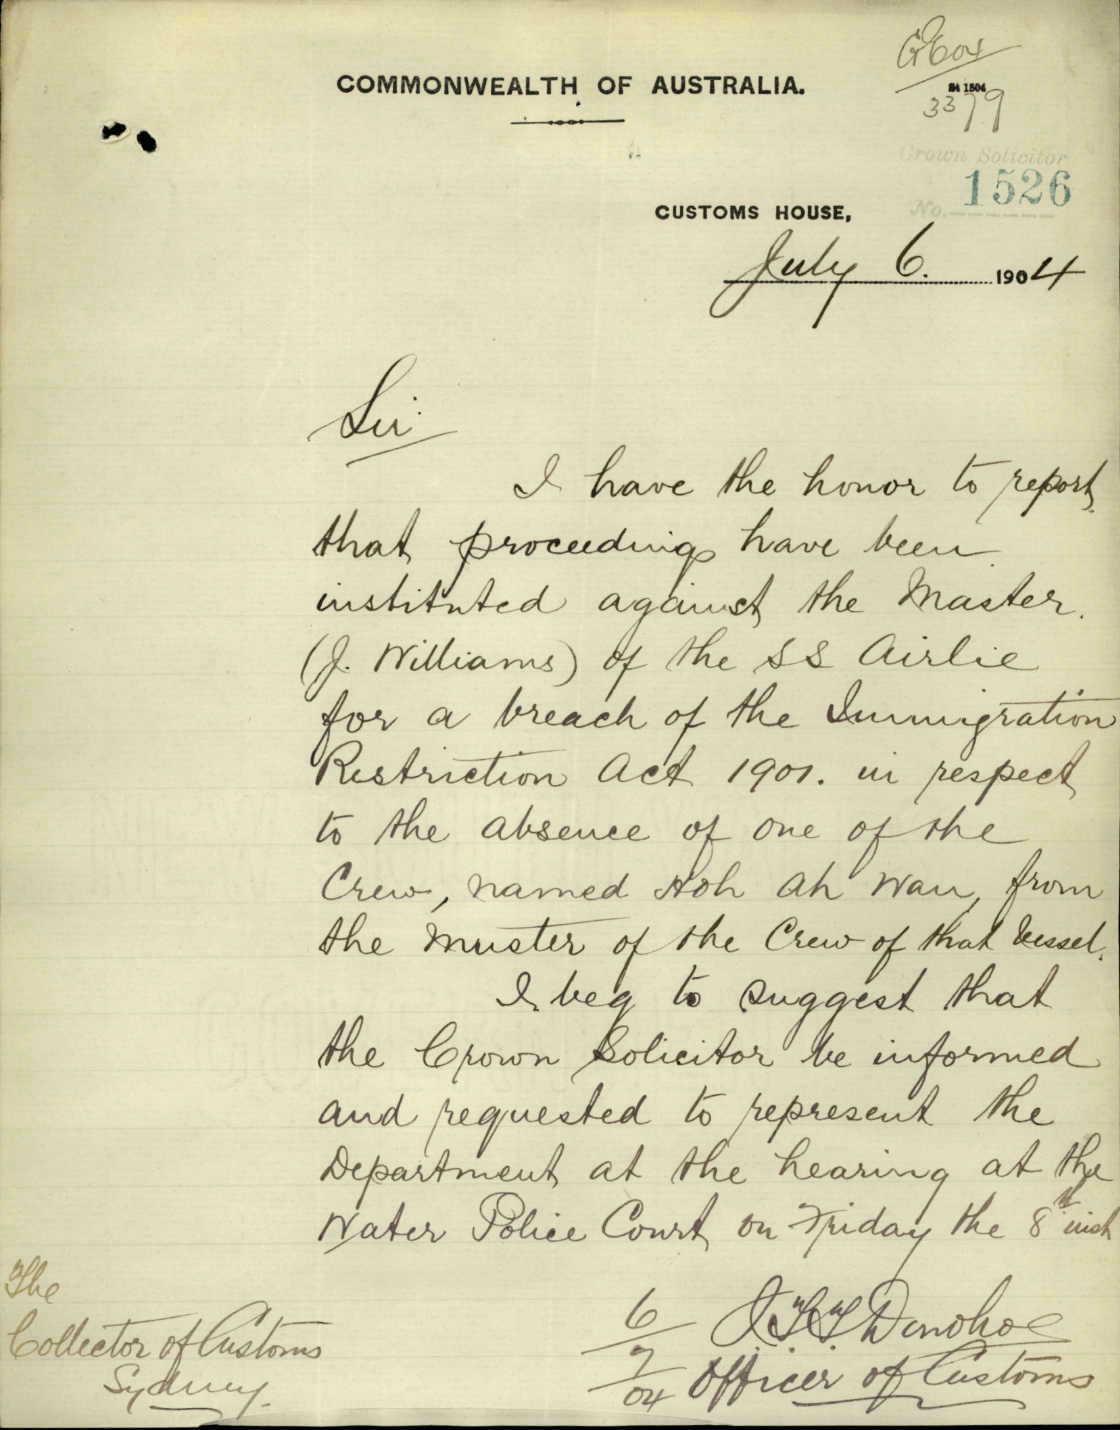 COMMONWEALTH OF AUSTRALIA.
3379
Crown Solicitor
No. 1526
CUSTOMS HOUSE,
July 6. 1904
Sir
I have the honor to report
that proceedings have been
instituted against the Master
(J. Williams) of the SS Airlie
for a breach of the Immigration
Restriction Act 1901. in respect
to the absence of one of the
Crew, named Hoh Ah Wan, from
the Muster of the Crew of that Vessel.
I beg to suggest that
the Crown Solicitor be informed
and requested to represent the
Department at the hearing at the
Water Police Court on Friday the 8th inst
The
Collector of Customs
Sydney.
Donohoe
Officer of Customs
6/7/04